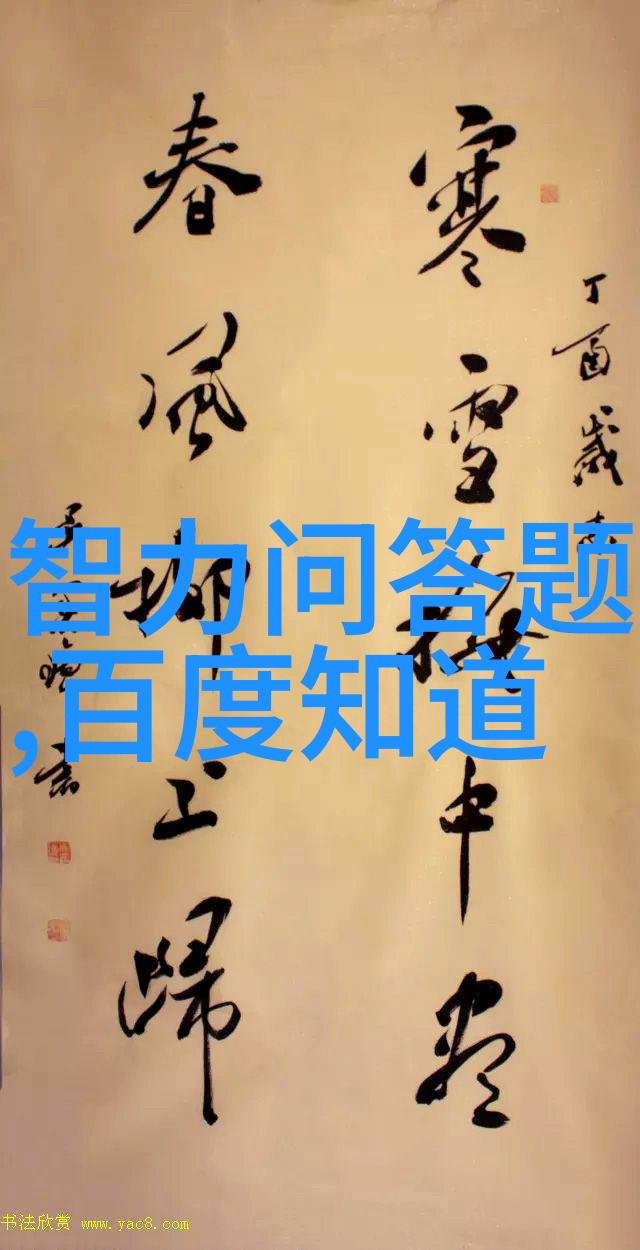 丁酉歲
寒雪梅中盡
春風柳上歸
智力问答题
,百度知道
书法欣赏 www.yac8.com